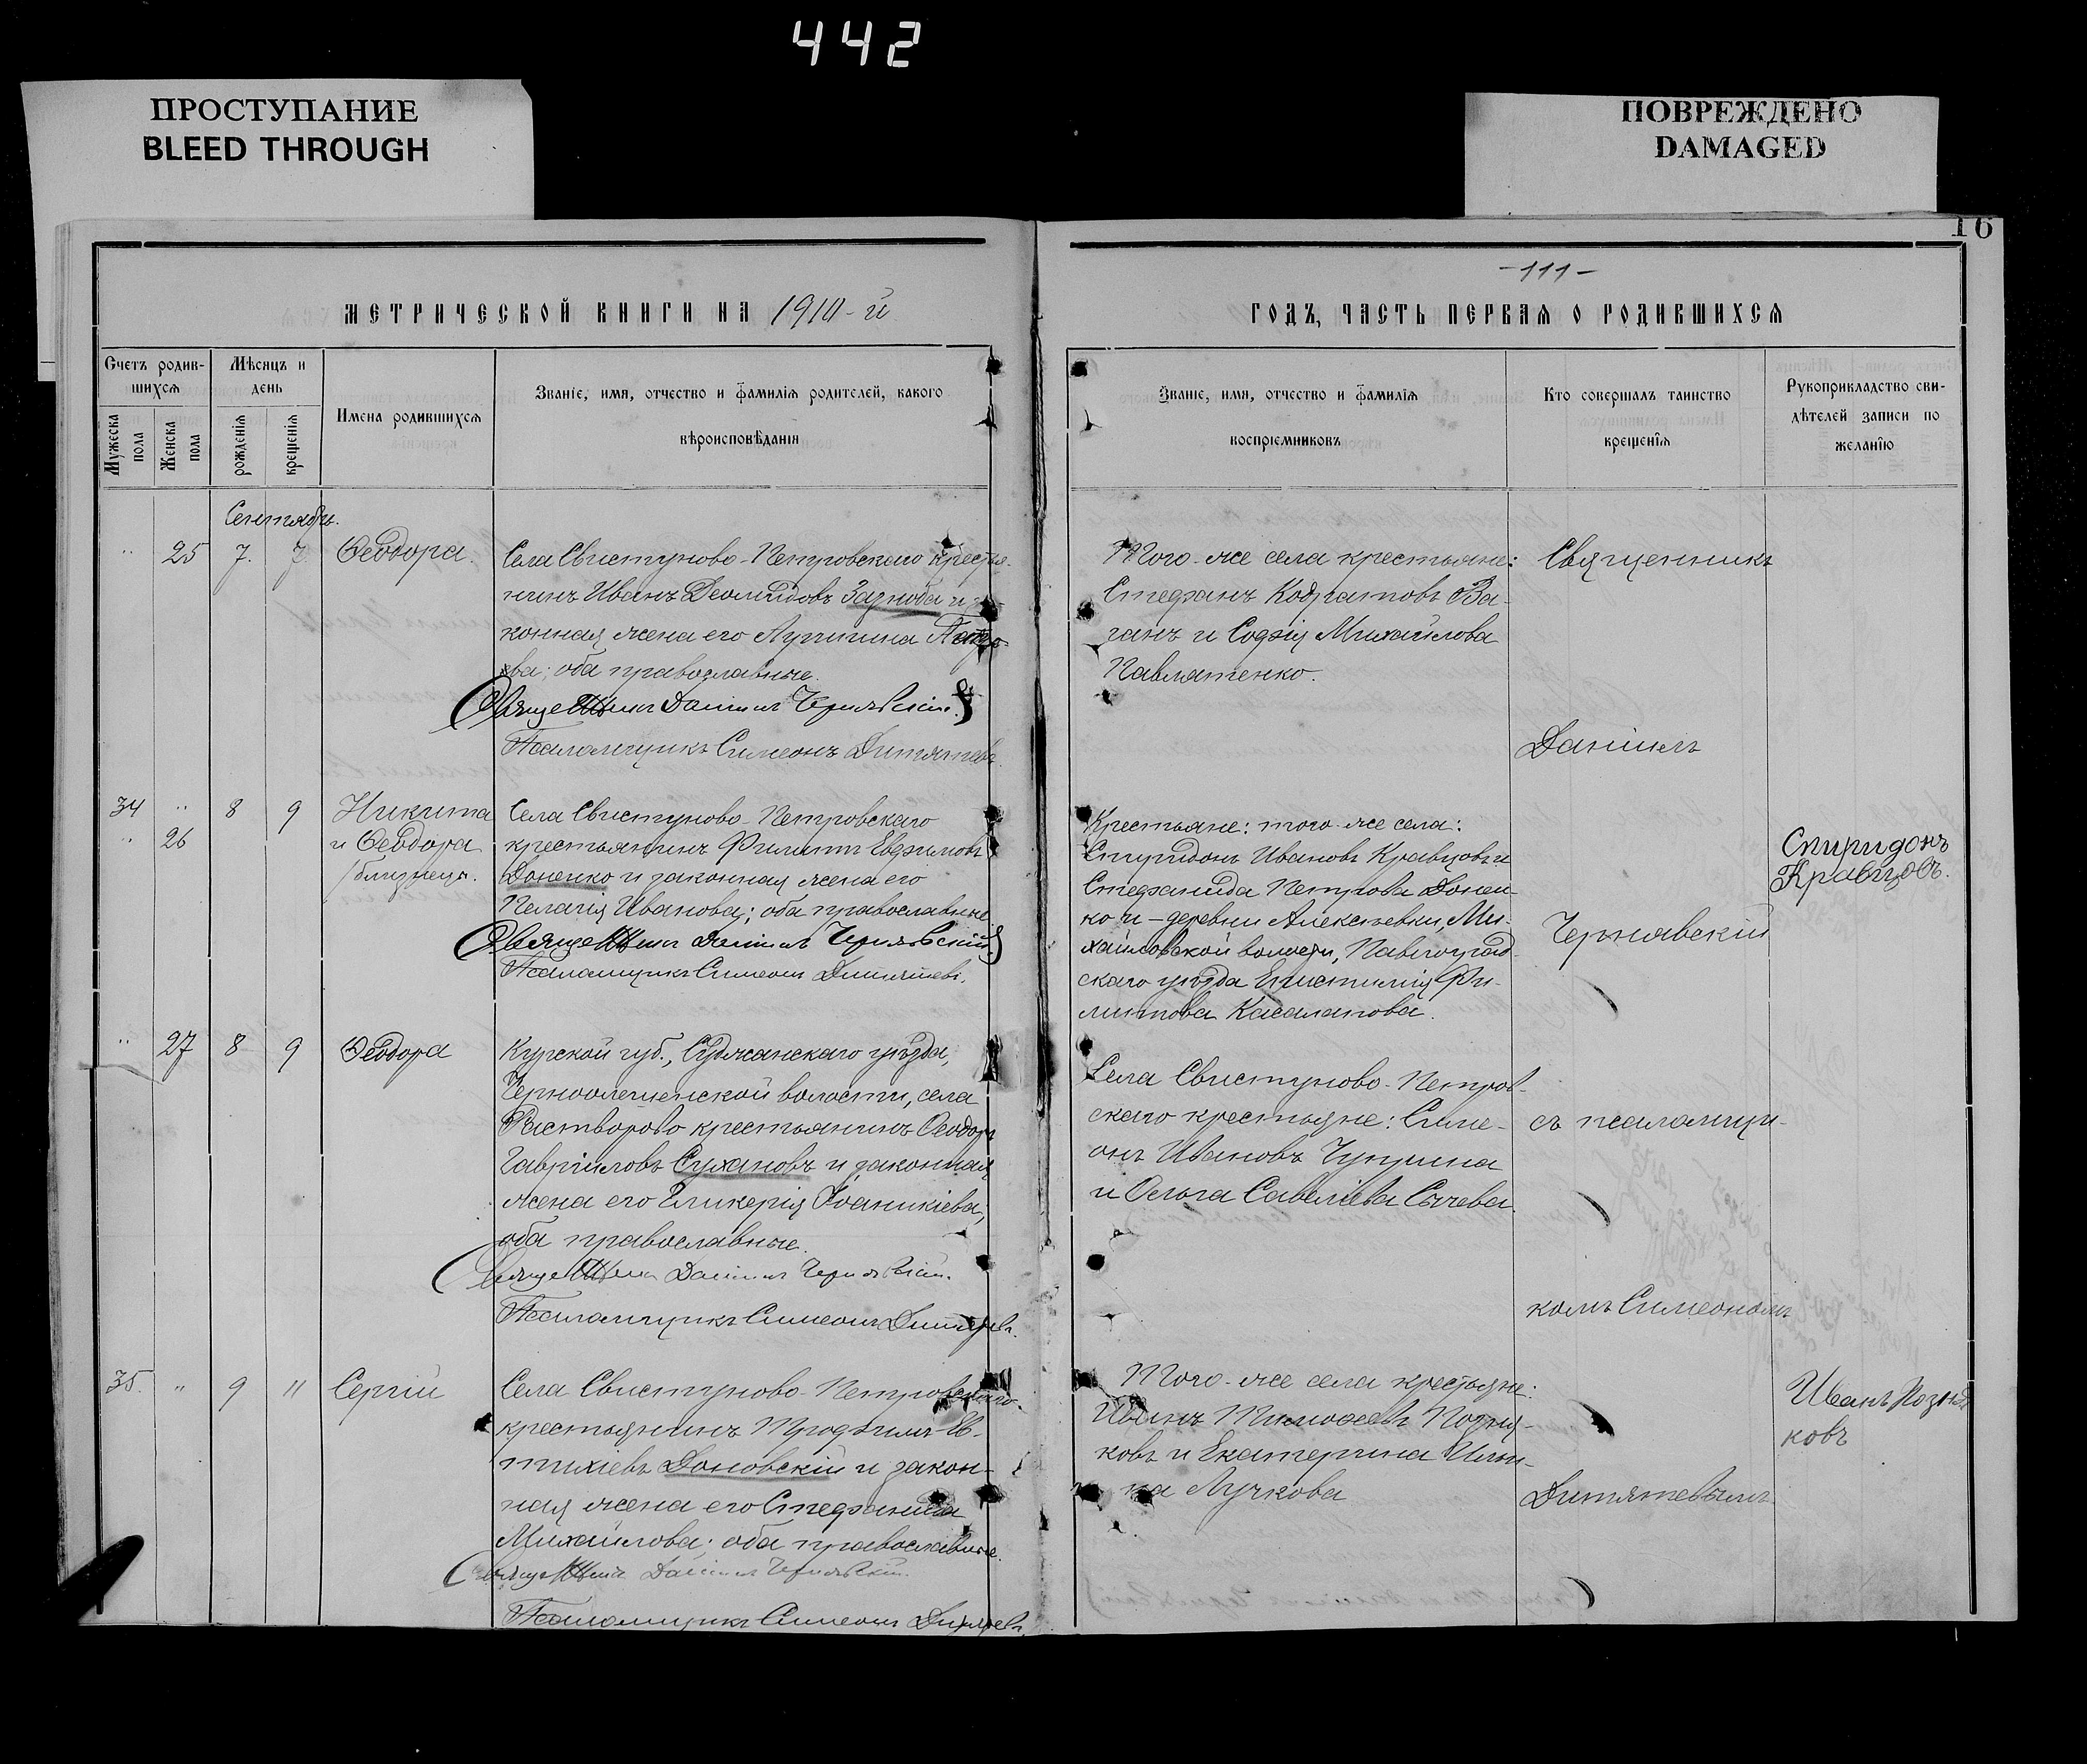 442
ПРОСТУПАНИЕ
BLEED THROUGH
ПОВРЕЖДЕНО
DAMAGED
16
-111-
МЕТРИЧЕСКОЙ КНИГИ НА 1910-й
ГОДЪ, ЧАСТЬ ПЕРВАЯ О РОДИВШИХСЯ
Счетъ родив-
шихся
Мѣсяцъ и
день
Мужеска
пола
Женска
пола
рожденія
крещенія
Имена родившихся
Званіе, имя, отчество и фамилія родителей, какого
вѣроисповѣданія
Званіе, имя, отчество и фамилія
воспріемниковъ
Кто совершалъ таинство
крещенія
Рукоприкладство сви-
дѣтелей записи по
желанію
Сентябрь.
" 25 7. 7. Ѳеодора.
Села Свистуново-Петровскаго крестья-
нинъ Иванъ Діомидовъ и за-
конная жена его
ва; оба православные.
Священникъ Даніилъ Чернявскій.
Псаломщикъ Симеонъ Дитятевъ.
Того-же села крестьяне:
Стефанъ Кодратовъ Ва-
ганъ и Софія Михайлова
Павлятенко.
Священникъ
Даніилъ
34 " 8 9 Никита
" 26 и Ѳеодора
/близнецы.
Села Свистуново-Петровскаго
крестьянинъ Филиппъ Евфимовъ
Доненко и законная жена его
Пелагія Иванова; оба православные
Священникъ Даніилъ Чернявскій
Псаломщикъ Симеонъ Дитятевъ.
Крестьяне: того-же села:
Спиридонъ Ивановъ Кравцовъ и
Стефанида Петрова Донен-
ко и - деревни Алексѣевки, Ми-
хайловской волости, Павлоград-
скаго уѣзда Епистимія Фи-
липпова Касалапова.
Чернявскій
Спиридонъ
Кравцовъ.
" 27 8 9 Ѳеодора
Курской губ., Суджанскаго уѣзда,
Черноолешенской волости, села
Растворово крестьянинъ Ѳеодоръ
Гавріиловъ Сухановъ и законная
жена его Гликерія Іоаникіева;
оба православные.
Священникъ Даніилъ Чернявскій.
Псаломщикъ Симеонъ Дитятевъ.
Села Свистуново-Петров-
скаго крестьяне: Симе-
онъ Ивановъ Чуприна
и Ольга Савеліева Сычева
съ псаломщи-
комъ Симеономъ
35. " 9 11 Сергій
Села Свистуново-Петровскаго
крестьянинъ Трофимъ Ев-
тихіевъ Доновскій и закон-
ная жена его Стефанида
Михайлова; оба православные.
Священникъ Даніилъ Чернявскій.
Псаломщикъ Симеонъ Дитятевъ.
Того-же села крестьяне:
Иванъ Тимоѳеевъ Позня-
ковъ и Екатерина Ильи-
на Лучкова
Дитятевымъ
Иванъ Позня
ковъ